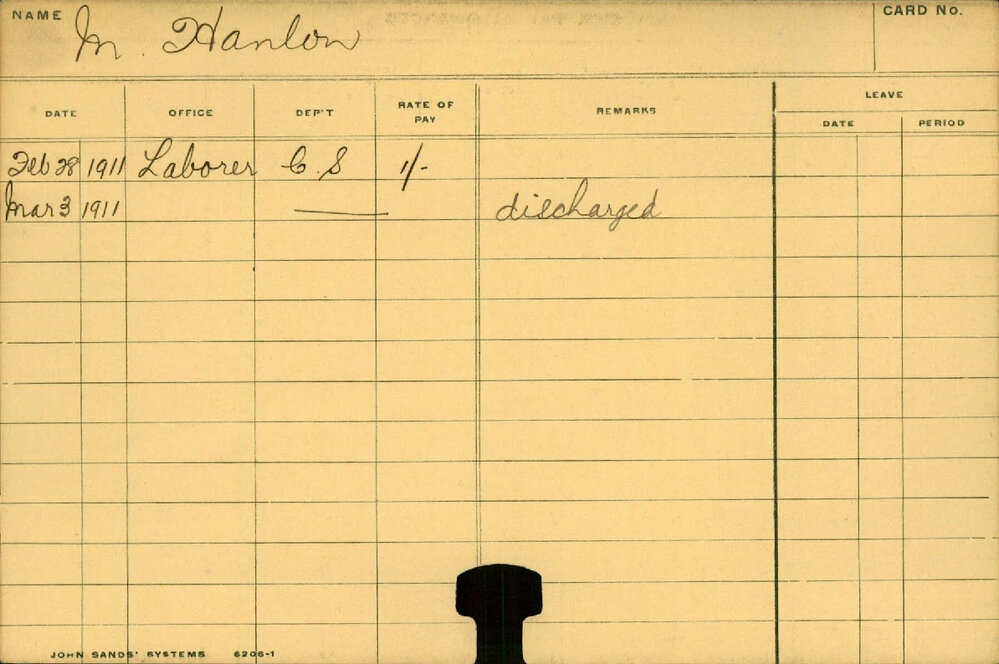 NAME M. Hanlon CARD No.
DATE OFFICE DEP'T RATE OF PAY REMARKS LEAVE
DATE PERIOD
Feb 28 1911 Laborer C. S 1/-
Mar 3 1911 — discharged
JOHN SANDS' SYSTEMS 6206-1